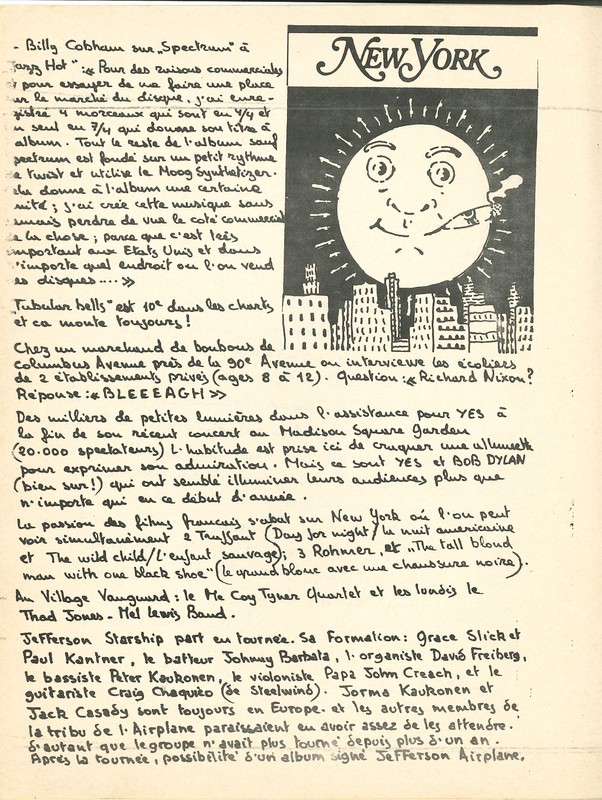 NEW YORK
- Billy Cobham sur „Spectrum" à
Jazz Hot" : « Pour des raisons commerciales
pour essayer de me faire une place
sur le marché du disque, j'ai enre-
gistré 4 morceaux qui sont en 4/4 et
un seul en 7/4 qui donne son titre à
l'album. Tout le reste de l'album sauf
Spectrum est fondé sur un petit rythme
de twist et utilise le Moog Synthetizer.
Cela donne à l'album une certaine
unité ; j'ai créé cette musique sans
jamais perdre de vue le coté commercial
de la chose ; parce que c'est très
important aux Etats Unis et dans
n'importe quel endroit où l'on vend
des disques.... »
„Tubular bells" est 10e dans les charts
et ca monte toujours !
Chez un marchand de bonbons de
Columbus Avenue près de la 90e Avenue on interviewe les écoliers
de 2 établissements privés (ages 8 à 12). Question : « Richard Nixon ?
Réponse : « BLEEEAGH »
Des milliers de petites lumières dans l'assistance pour YES à
la fin de son récent concert au Madison Square Garden
(20.000 spectateurs) L'habitude est prise ici de craquer une allumette
pour exprimer son admiration. Mais ce sont YES et BOB DYLAN
(bien sur !) qui ont semblé illuminer leurs audiences plus que
n'importe qui en ce début d'année.
La passion des films francais s'abat sur New York où l'on peut
voir simultanément 2 Truffaut (Day for night / la nuit americaine
et The wild child / L'enfant sauvage) ; 3 Rohmer, et „The tall blond
man with one black shoe" (le grand blond avec une chaussure noire).
Au Village Vanguard : le Mc Coy Tyner Quartet et les lundis le
Thad Jones - Mel Lewis Band.
Jefferson Starship part en tournée. Sa Formation : Grace Slick et
Paul Kantner, le batteur Johnny Barbata, l'organiste David Freiberg,
le bassiste Peter Kaukonen, le violoniste Papa John Creach, et le
guitariste Craig Chaquico (de Steelwind). Jorma Kaukonen et
Jack Casady sont toujours en Europe. et les autres membres de
la tribu de l'Airplane paraissaient en avoir assez de les attendre.
d'autant que le groupe n'avait plus tourné depuis plus d'un an.
Après la tournée, possibilité d'un album signé Jefferson Airplane.